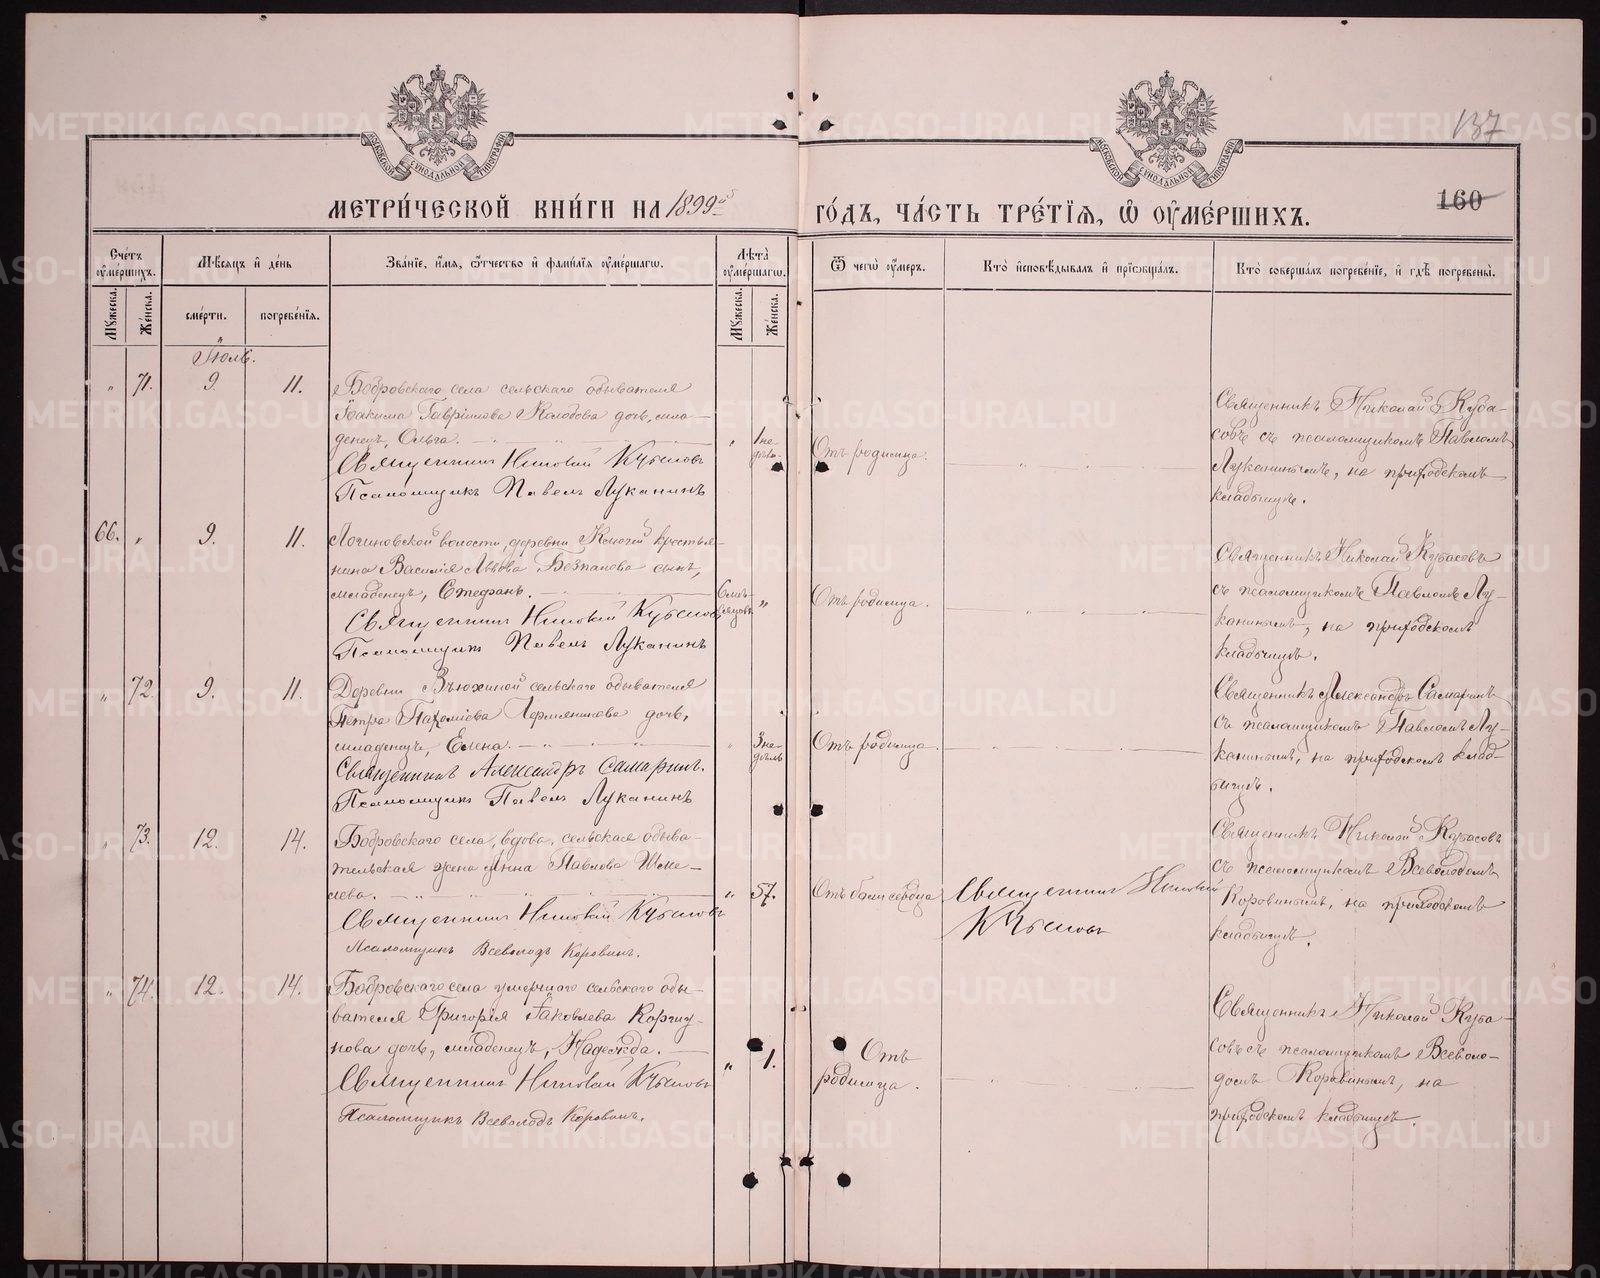 137
160
МЕТРИ́ЧЕСКОЙ КНИ́ГИ НА 1899й
ГО́ДЪ, ЧА́СТЬ ТРЕ́ТЇѦ, Ѡ҆ ОУ҆МЕ́РШИХЪ.
Сче́тъ оу҆ме́ршихъ.
Мꙋжеска.
Же́нска.
Мѣ́сѧцъ и҆ де́нь
сме́рти.
погребе́нїѧ.
Зва́нїе, и҆́мѧ, ѻ҆́тчество и҆ фами́лїѧ оу҆ме́ршагѡ.
Лѣ́та оу҆ме́ршагѡ.
Мꙋжеска.
Же́нска.
Ѿ чегѡ̀ оу҆́меръ.
Кто̀ и҆сповѣ́дывалъ и҆ прїѡбща́лъ.
Кто̀ соверша́лъ погребе́нїе, и҆ гдѣ̀ погребены̀.
Іюль.
" 71. 9. 11.
Бобровскаго села сельскаго обывателя
Іоакима Гавріилова Колобова дочь, мла-
денецъ, Ольга.
Священникъ Николай Кубасовъ
Псаломщикъ Павелъ Луканинъ
Отъ родимца.
Священникъ Николай Куба-
совъ съ псаломщикомъ Павломъ
Луканинымъ, на приходскомъ
кладбищѣ.
66. " 9. 11.
Логиновской волости, деревни Ключей крестья-
нина Василія Львова Безпалова сынъ,
младенецъ, Стефанъ.
Священникъ Николай Кубасовъ
Псаломщикъ Павелъ Луканинъ
6 мѣ-
сяцовъ "
Отъ родимца.
Священникъ Николай Кубасовъ
съ псаломщикомъ Павломъ Лу-
канинымъ, на приходскомъ
кладбищѣ.
" 72. 9. 11.
Деревни Вьюхиной сельскаго обывателя
Петра Пахоміева Пермянникова дочь,
младенецъ, Елена.
Священникъ Александръ Самаринъ.
Псаломщикъ Павелъ Луканинъ
" 3 не-
дѣль
Отъ родимца.
Священникъ Александръ Самаринъ
съ псаломщикомъ Павломъ Лу-
канинымъ, на приходскомъ клад-
бищѣ.
" 73. 12. 14.
Бобровскаго села, вдова, сельская обыва-
тельская жена Анна Павлова Шме-
лева.
Священникъ Николай Кубасовъ
Псаломщикъ Всеволодъ Коровинъ.
" 57.
Отъ боли сердца
Священникъ Николай
Кубасовъ
Священникъ Николай Кубасовъ
съ псаломщикомъ Всеволодомъ
Коровинымъ, на приходскомъ
кладбищѣ.
" 74. 12. 14.
Бобровскаго села умершаго сельскаго обы-
вателя Григорія Іаковлева Коргу-
нова дочь, младенецъ, Надежда.
Священникъ Николай Кубасовъ
Псаломщикъ Всеволодъ Коровинъ.
" 1.
Отъ
родимца.
Священникъ Николай Куба-
совъ съ псаломщикомъ Всеволо-
домъ Коровинымъ, на
приходскомъ кладбищѣ.
METRIKI.GASO-URAL.RU